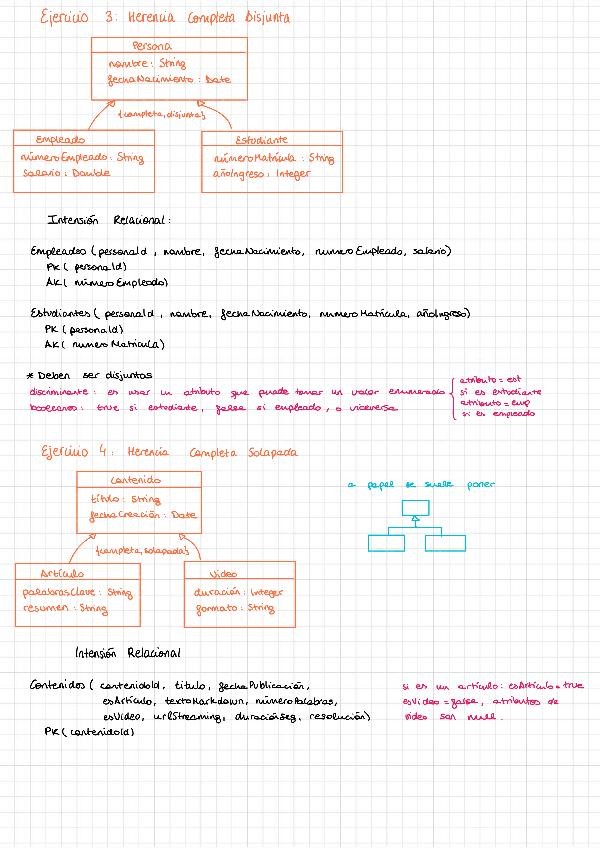 Ejercicio 3: Herencia Completa Disjunta
Persona
nombre: String
fechaNacimiento: Date
{completa, disjunta}
Empleado
númeroEmpleado: String
Salario: Double
Estudiante
númeroMatrícula: String
añoIngreso: Integer
Intensión Relacional:
Empleados (personaId, nombre, fechaNacimiento, numeroEmpleado, salario)
PK (personaId)
AK (númeroEmpleado)
Estudiantes (personaId, nombre, fechaNacimiento, numeroMatrícula, añoIngreso)
PK (personaId)
AK (numeroMatrícula)
* Deben ser disjuntos
discriminante: es usar un atributo que puede tomar un valor enumerado
atributo = est
si es estudiante
atributo = emp
si es empleado
booleanos: true si estudiante, false si empleado, o viceversa
Ejercicio 4: Herencia Completa Solapada
Contenido
título: String
fechaCreación: Date
{completa, solapada}
Artículo
palabrasClave: String
resumen: String
Video
duración: Integer
formato: String
a papel se suele poner
Intensión Relacional
Contenidos (contenidoId, titulo, fechaPublicación,
esArtículo, textoMarkdown, númeroPalabras,
esVideo, urlStreaming, duraciónSeg, resolución)
PK (contenidoId)
si es un artículo: esArtículo = true
esVideo = false, atributos de
video son null.